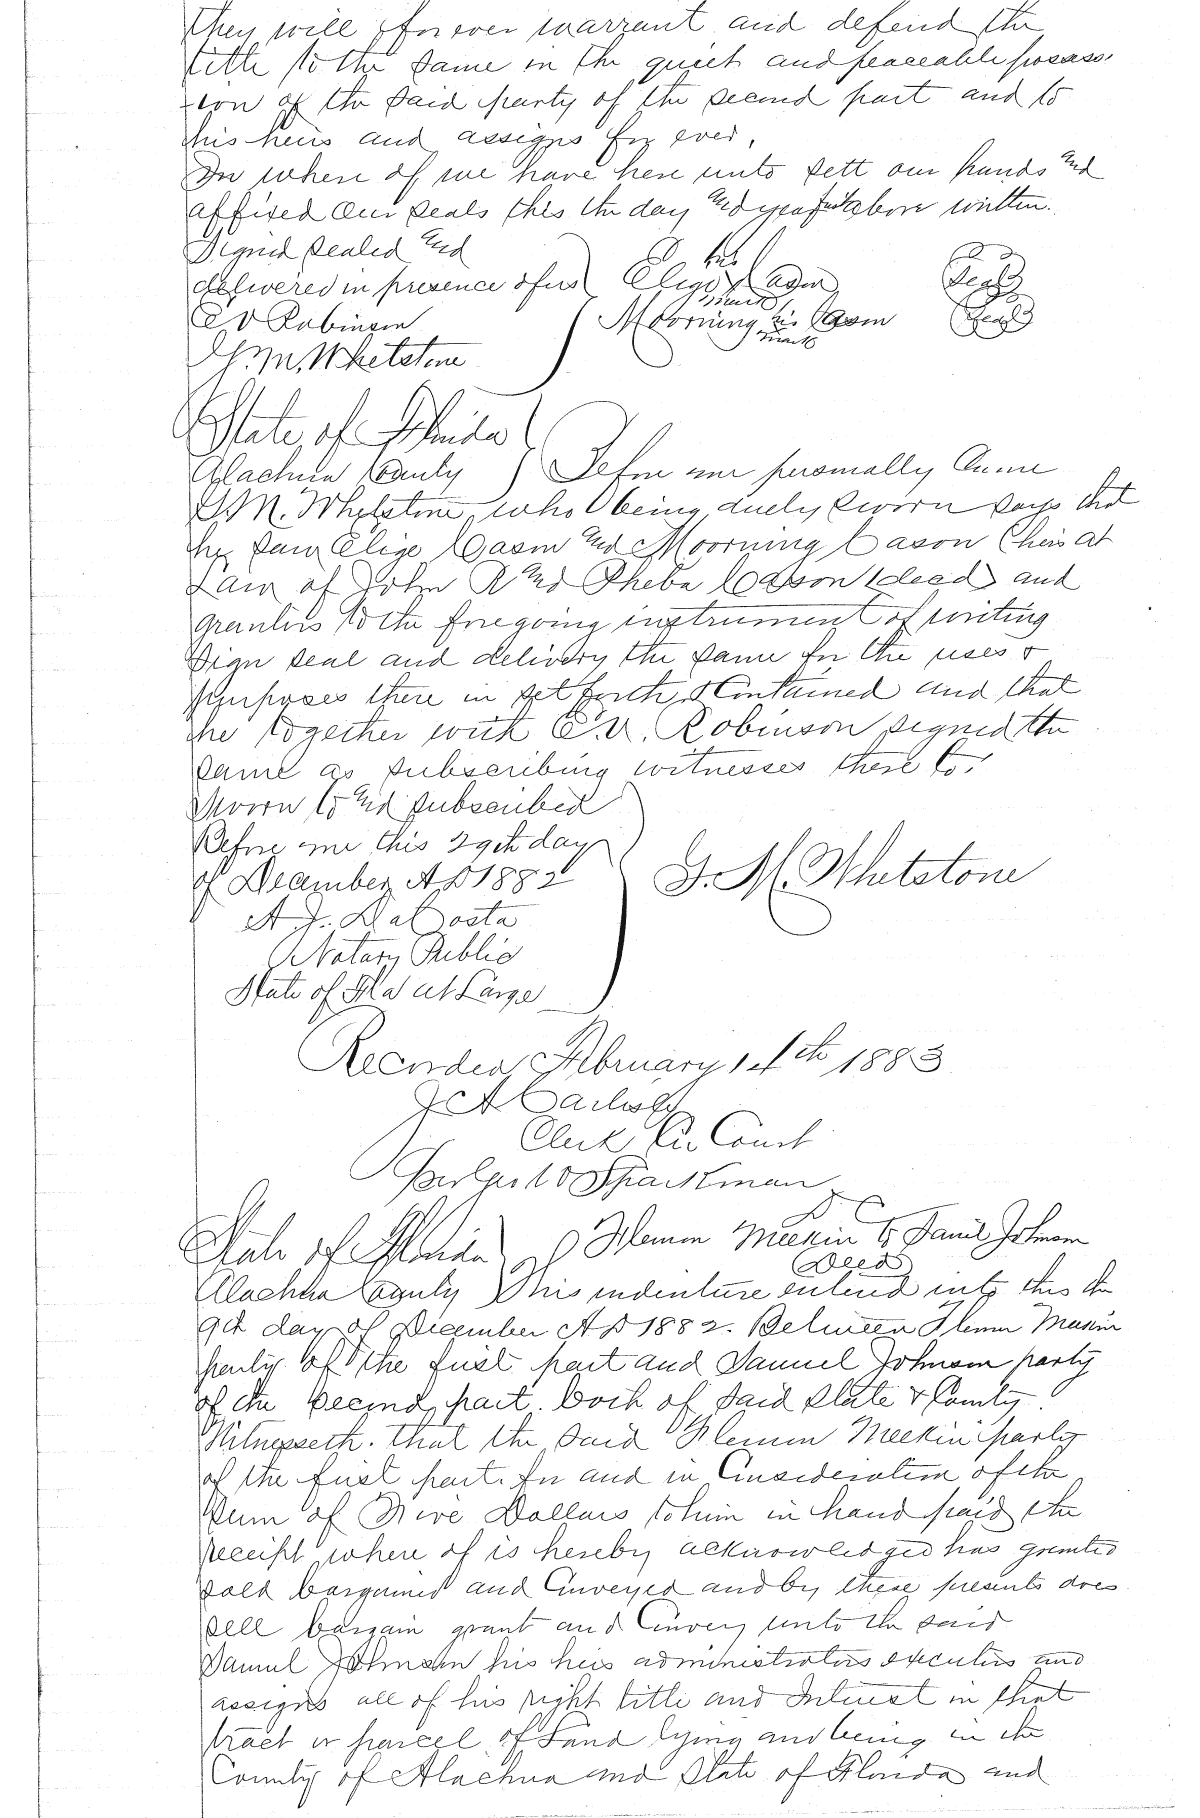 they will forever warrant and defend the
title to the same in the quiet and peaceable possess
-ion of the said party of the second part and to
his heirs and assigns for ever.
In where of we have here unto sett our hands and
affixed our seals this the day and year first above written.
Signed sealed and
delivered in presence of us Elige his mark Cason Seal
E V Robinson Moorning his mark Cason Seal
G. M. Whetstone
State of Florida
Alachua County Before me personally came
G. M. Whetstone, who being duely sworn says that
he saw Elige Cason and Moorning Cason (heirs at
Law of John R and Pheba Cason (dead) and
grantors to the foregoing instrument of writing
Sign seal and delivery the same for the uses &
purposes there in set forth & Contained and that
he together with E. V. Robinson signed the
same as subscribing witnesses there to.
Sworn to and subscribed
Before me this 29th day
of December A D 1882 G. M. Whetstone
A. J. DaCosta
Notary Public
State of Fla at Large
Recorded February 14th 1883
J A Carlisle
Clerk Cir Court
Sparkman
State of Florida Flemon Meekin to Samil Johnson
Deed
Alachua County This indenture entered into this the
9th day of December A D 1882. Between Flemon Meekin
party of the first part and Samuel Johnson party
of the second part. both of said State & County.
Witnesseth. that the said Flemon Meekin party
of the first part. for and in Consideration of the
Sum of Five Dollars to him in hand paid the
receipt where of is hereby acknowledged has granted
sold bargained and Conveyed and by these presents does
sell bargain grant and Convey unto the said
Samuel Johnson his heirs administrators executors and
assigns all of his right title and Interest in that
tract or parcel of Land lying and being in the
County of Alachua and State of Florida and